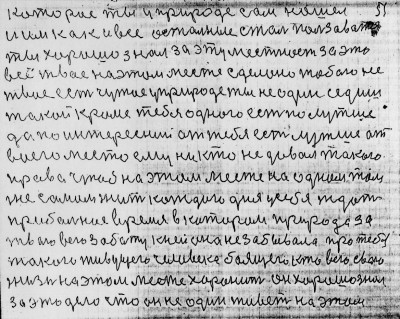 которае ты у природе сам нашел 51
и им как и все остальные стал ползоват
ты хорошо знал за эту местност за это
всё твае на этом месте сделоно табою не
твае ест чужае у природе ты не один седиш
такой кроме тебя одного ест полутше
да по интересний от тебя ест лутше от
твоего место ему никто не дивал такого
права чтоб на этом месте на одном том
же самом жит каждого дня у себя ждат
прибалное время в катором природа за
тваю всего заботу к ней она не забывала про тебя
такого живущего человека боящего кто всего свою
жызн на этом месте хоронит он хорошо знал
за это дело что он не один живёт на этом